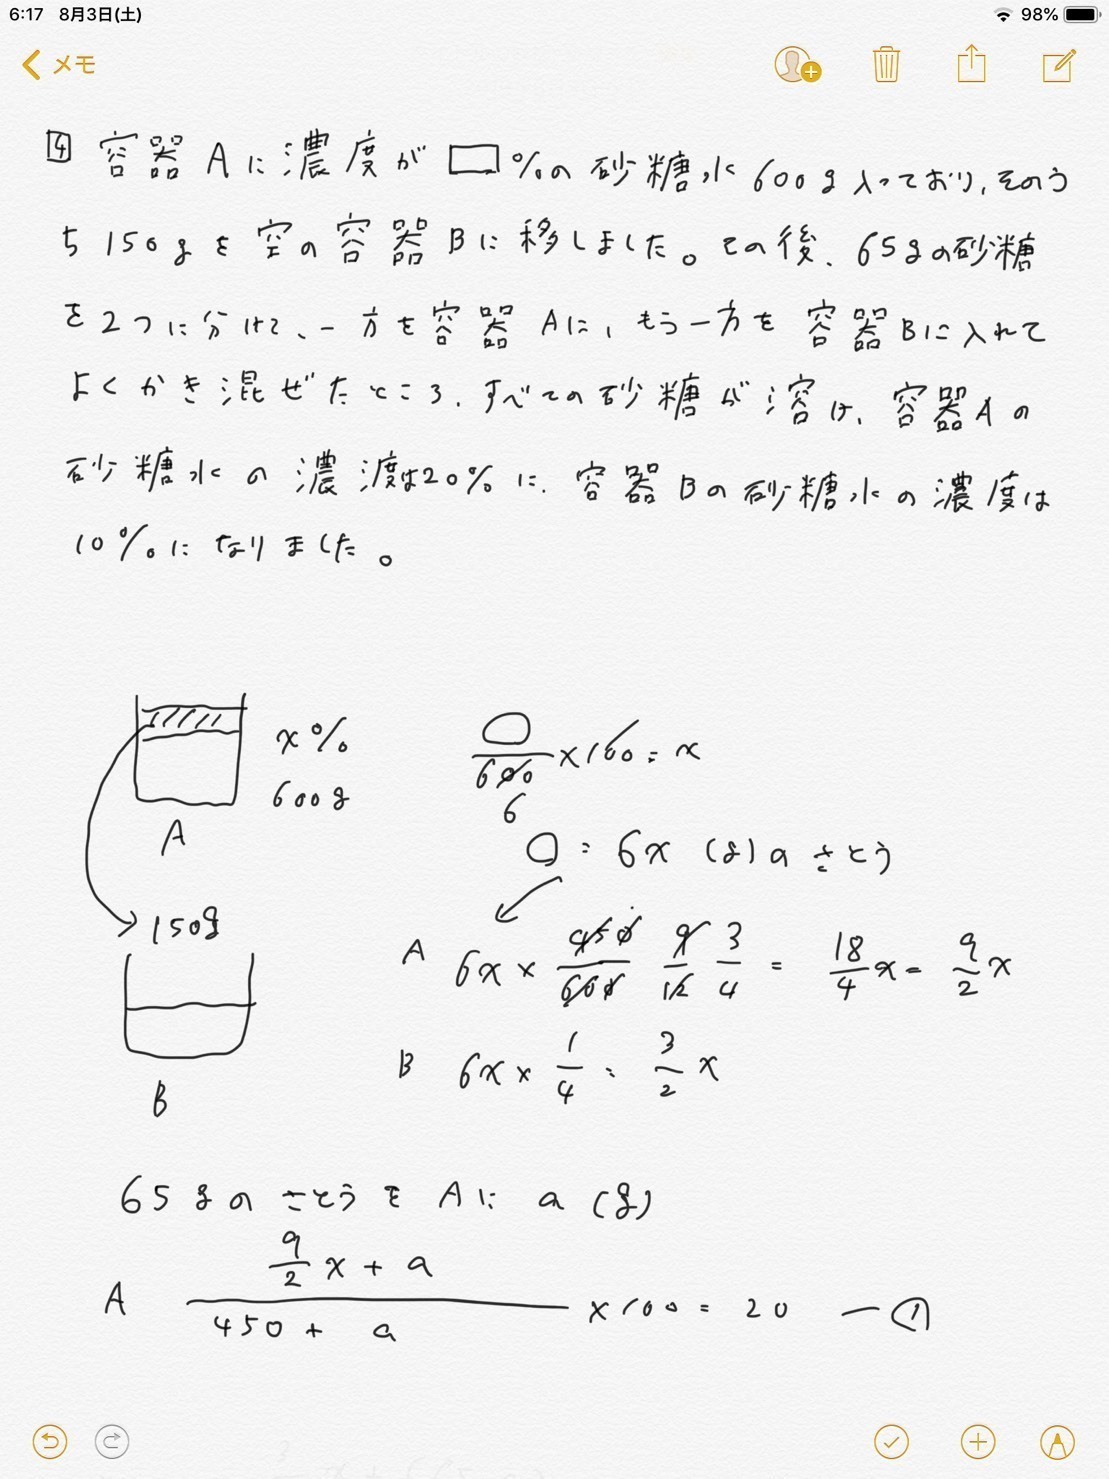 6:17 8月3日(土) 98%
メモ
4 容器Aに濃度が□%の砂糖水600g入っており、そのう
ち150gを空の容器Bに移しました。その後、65gの砂糖
を2つに分けて、一方を容器Aに、もう一方を容器Bに入れて
よくかき混ぜたところ、すべての砂糖が溶け、容器Aの
砂糖水の濃度は20%に、容器Bの砂糖水の濃度は
10%になりました。
x%
600g
A
150g
B
○/600 6 ×100 = x
○ = 6x (g)のさとう
A 6x × 450/600 9/12 3/4 = 18/4 x = 9/2 x
B 6x × 1/4 = 3/2 x
65gのさとうをAに a (g)
A (9/2 x + a)/(450 + a) ×100 = 20 ー①